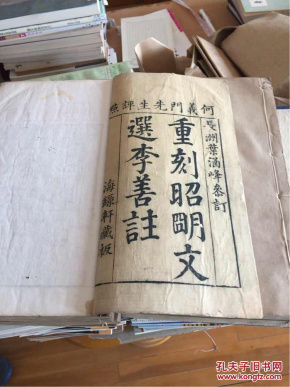 何義門先生評點
長洲葉涵峰參訂
重刻昭明文
選李善註
海綠軒藏板
孔夫子旧书网